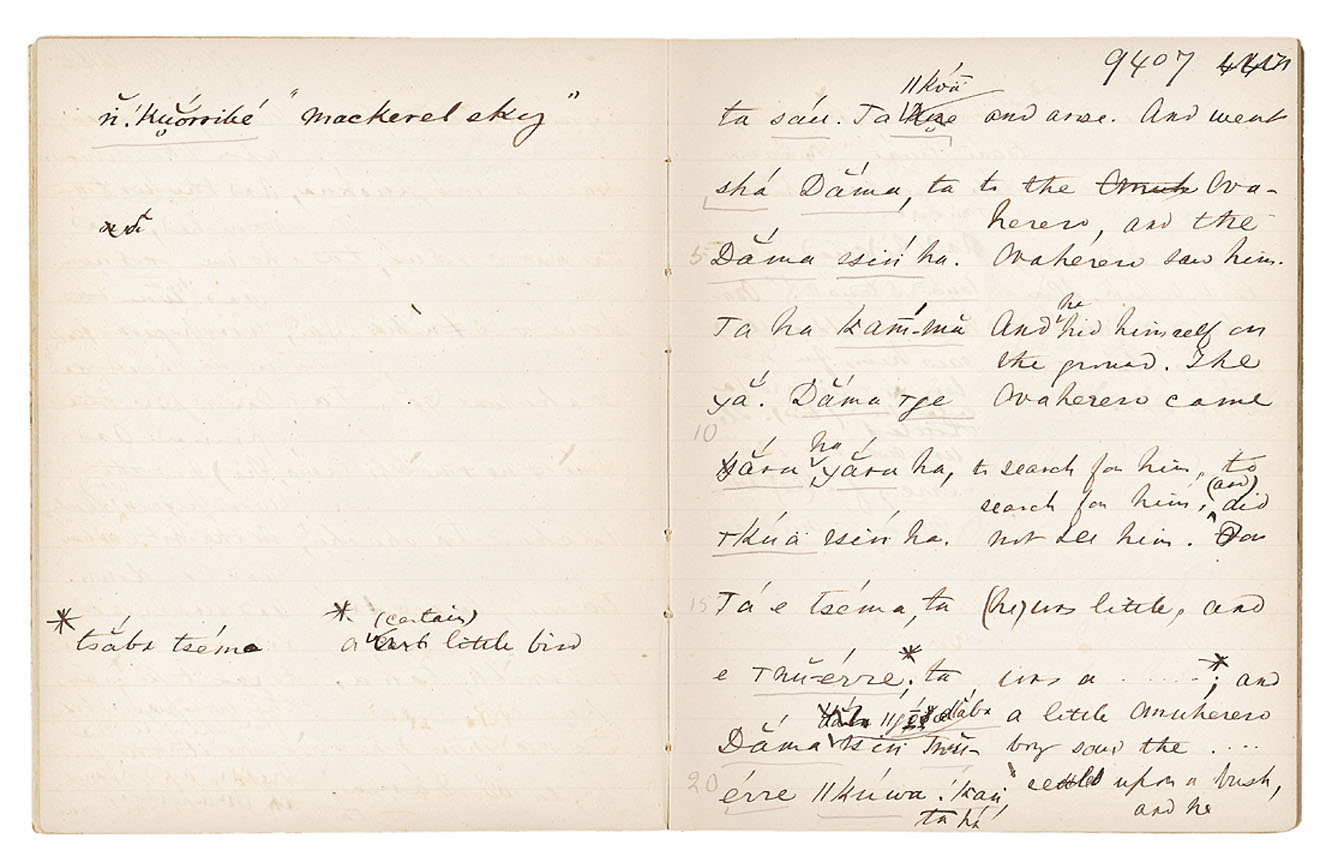 n̆.!kŭórriké "mackerel sky"
* tsăba tséma
* a (certain) little bird
9407
ǁkóä
ta sáu. Ta and arose. And went
shá Dắma, ta to the Omuh Ova-
herero, and the
5 Dắma ssiń ha. Ovaherero saw him.
Ta ha kam̄-ma And he hid himself on
the ground. The
yắ. Dắma τge Ovaherero came
10
sắra ha yắra ha, to search for him, to
search for him, (and) did
τkúä ssiń ha. not see him. For
15 Tá e tséma, ta (he) was little, and
e τnŭ-érre*; ta was a ......*; and
dăba a little Omuherero
Dắma ssiń τnŭ- boy saw the ....
20 érre ǁkúwa !kań, seated upon a bush,
ta há and he